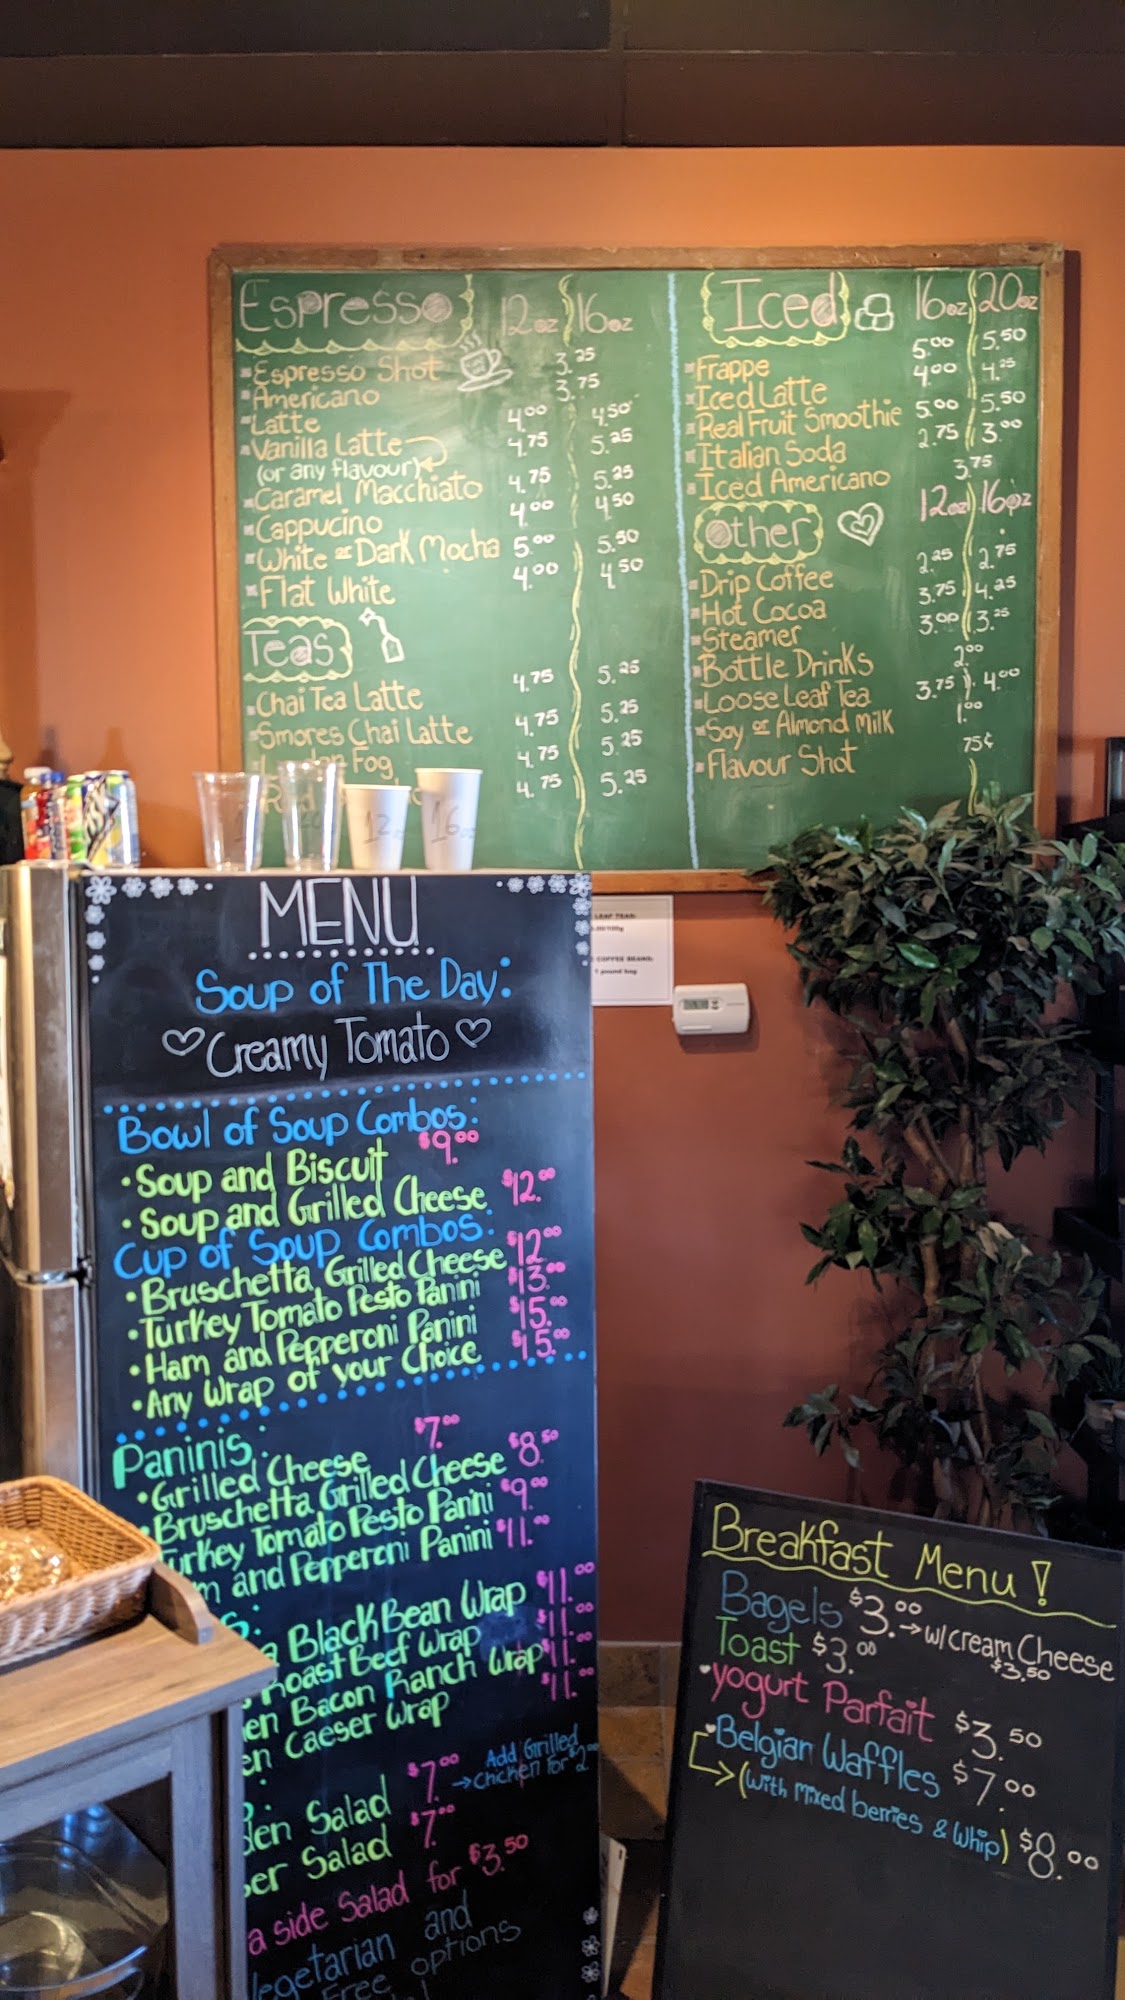 Espresso 12oz 16oz
Espresso Shot 3.25
Americano 3.75
Latte 4.00 4.50
Vanilla Latte 4.75 5.25
(or any flavour)
Caramel Macchiato 4.75 5.25
Cappucino 4.00 4.50
White or Dark Mocha 5.00 5.50
Flat White 4.00 4.50
Teas
Chai Tea Latte 4.75 5.25
Smores Chai Latte 4.75 5.25
Fog 4.75 5.25
4.75 5.25
Iced 16oz 20oz
Frappe 5.00 5.50
Iced Latte 4.00 4.25
Real Fruit Smoothie 5.00 5.50
Italian Soda 2.75 3.00
Iced Americano 3.75
Other 12oz 16oz
Drip Coffee 2.25 2.75
Hot Cocoa 3.75 4.25
Steamer 3.00 3.25
Bottle Drinks 2.00
Loose Leaf Tea 3.75 4.00
Soy or Almond Milk 1.00
Flavour Shot 75¢
12oz
16oz
LEAF TEAS:
COFFEE BEANS:
1 pound bag
MENU
Soup of The Day:
Creamy Tomato
Bowl of Soup Combos:
• Soup and Biscuit $9.00
• Soup and Grilled Cheese $12.00
Cup of Soup Combos:
• Bruschetta Grilled Cheese $12.00
• Turkey Tomato Pesto Panini $13.00
• Ham and Pepperoni Panini $15.00
• Any Wrap of your Choice $15.00
Paninis:
• Grilled Cheese $7.00
• Bruschetta Grilled Cheese $8.50
urkey Tomato Pesto Panini $9.00
m and Pepperoni Panini $11.00
s:
a Black Bean Wrap $11.00
Roast Beef Wrap $11.00
en Bacon Ranch Wrap $11.00
en Caeser Wrap $11.00
den Salad $7.00 → Add Grilled Chicken for $2.00
ser Salad $7.00
a side Salad for $3.50
egetarian and
Free options
Breakfast Menu!
Bagels $3.00 → w/ cream Cheese
$3.50
Toast $3.00
• yogurt Parfait $3.50
Belgian Waffles $7.00
(with mixed berries & Whip) $8.00